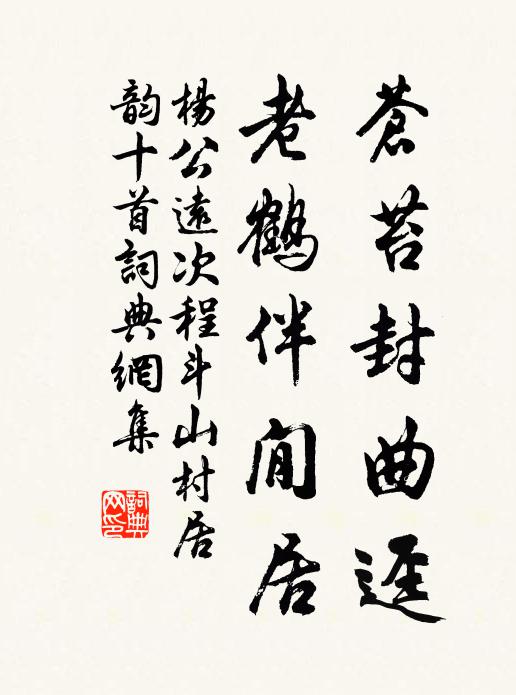 蒼苔封曲逕
老鶴伴閒居
楊公遠次程斗山村居
韵十首詞典網集
詞典网印